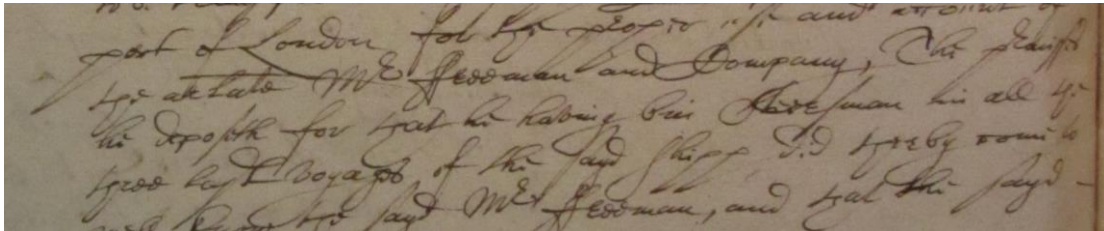 port of London for the proper use and account of
the arlate Mr Freeman and Company, The premisses
he deposeth for that he having bin Steersman in all the
three last voyages of the sayd shipp did thereby come to
well know the sayd Mr Freeman, and that the sayd